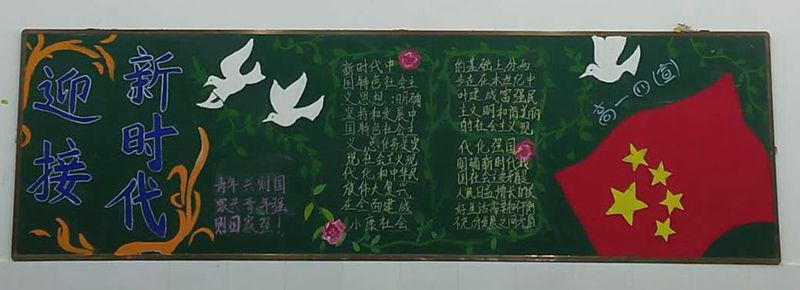 迎接
新时代
青年兴则国
家兴青年强
则国家强！
新时代中
国特色社会主
义思想:明确
坚持和发展中
国特色社会主
义,总任务是实
现社会主义现
代化和中华民
族伟大复兴,
在全面建成
小康社会
的基础上分两
步走在本世纪中
叶建成富强民
主文明和谐美丽
的社会主义现
代化强国
明确新时代我
国社会主要矛盾是
人民日益增长的美
好生活需要和不平衡
不充分发展之间矛盾
高一